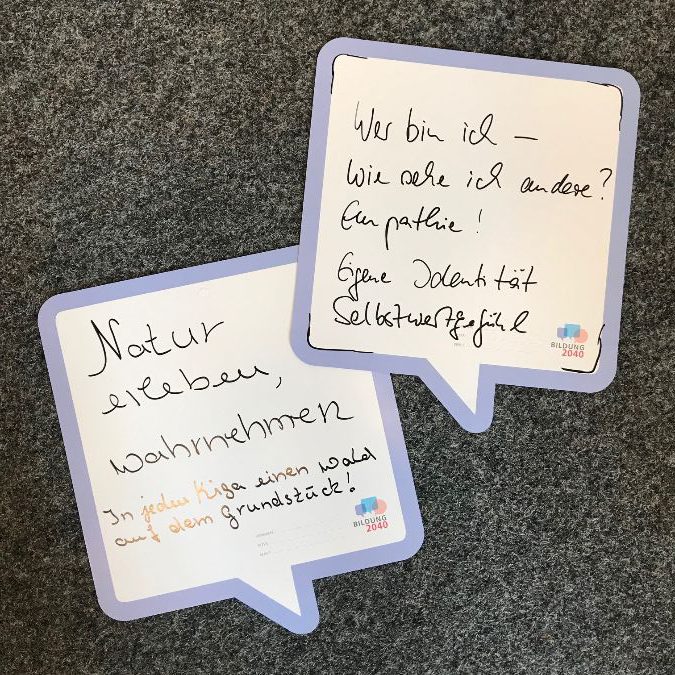 Wer bin ich –
Wie sehe ich andere?
Empathie!
Eigene Identität
Selbstwertgefühl
BILDUNG
2040
Natur
erleben,
wahrnehmen
In jeder Kiga einen Wald
auf dem Grundstück!
BILDUNG
2040